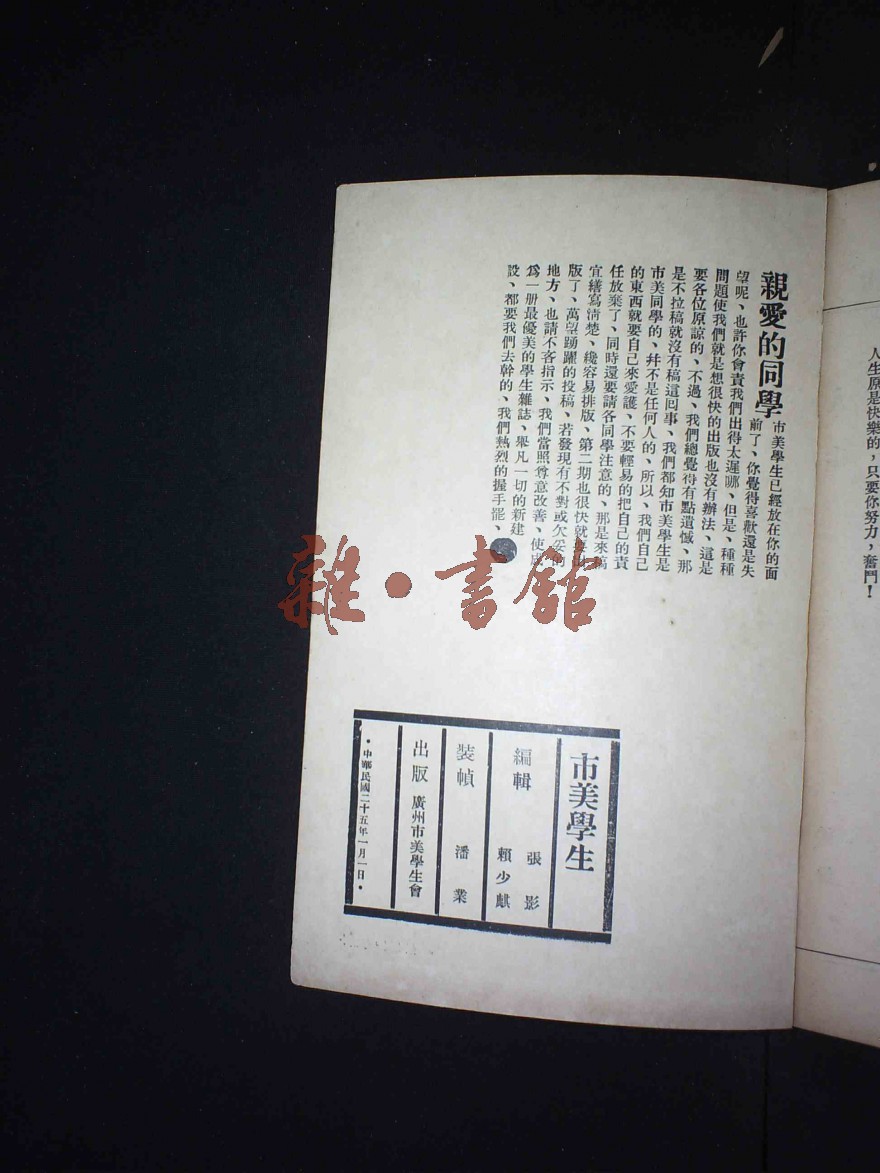 人生原是快樂的，只要你努力，奮鬥！
親愛的同學
市美學生已經放在你的面
前了、你覺得喜歡還是失
望呢、也許你會責我們出得太遲哪、但是、種種
問題使我們就是想很快的出版也沒有辦法、這是
要各位原諒的、不過、我們總覺得有點遺憾、那
是不拉稿就沒有稿這囘事、我們都知市美學生是
市美同學的、幷不是任何人的、所以、我們自己
的東西就要自己來愛護、不要輕易的把自己的責
任放棄了、同時還要請各同學注意的、那是來稿
宜繕寫淸楚、纔容易排版、第二期也很快就要出
版了、萬望踴躍的投稿、若發現有不對或欠妥的
地方、也請不吝指示、我們當照尊意改善、使成
爲一册最優美的學生雜誌、舉凡一切的新建
設、都要我們去幹的、我們熱烈的握手罷、
市美學生
編輯 張影
賴少麒
裝幀 潘業
出版 廣州市美學生會
•中華民國二十五年一月一日•
雜•書館